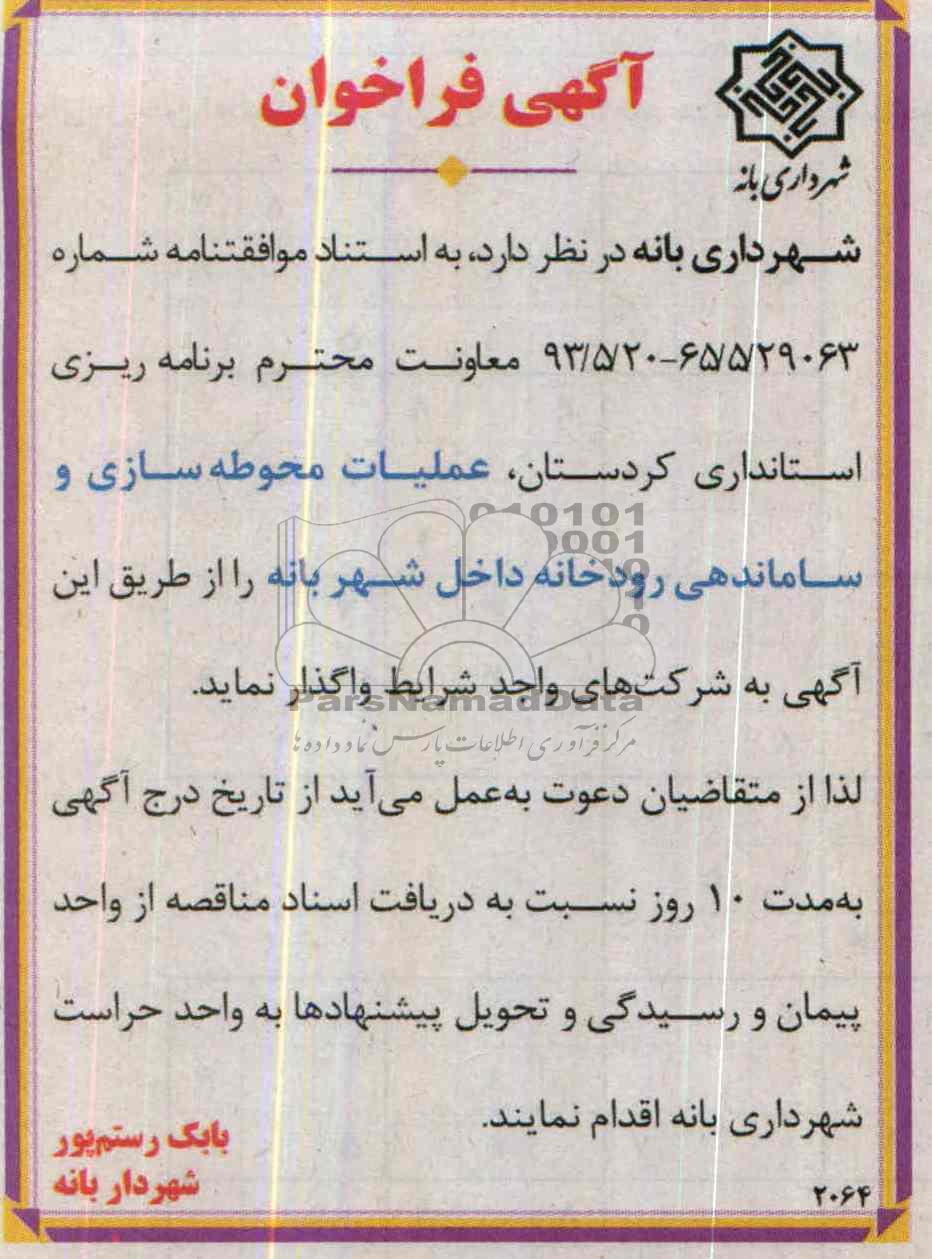 آگهی فراخوان
شهرداری بانه
شهرداری بانه در نظر دارد، به استناد موافقتنامه شماره
۹۳/۵/۲۰-۶۵/۵/۲۹۰۶۳ معاونت محترم برنامه ریزی
استانداری کردستان، عملیات محوطه سازی و
ساماندهی رودخانه داخل شهر بانه را از طریق این
آگهی به شرکت‌های واجد شرایط واگذار نماید.
ParsNamadData
مرکز فرآوری اطلاعات پارس نماد داده ها
لذا از متقاضیان دعوت به‌عمل می‌آید از تاریخ درج آگهی
به‌مدت ۱۰ روز نسبت به دریافت اسناد مناقصه از واحد
پیمان و رسیدگی و تحویل پیشنهادها به واحد حراست
شهرداری بانه اقدام نمایند.
بابک رستم‌پور
شهردار بانه
۲۰۶۴